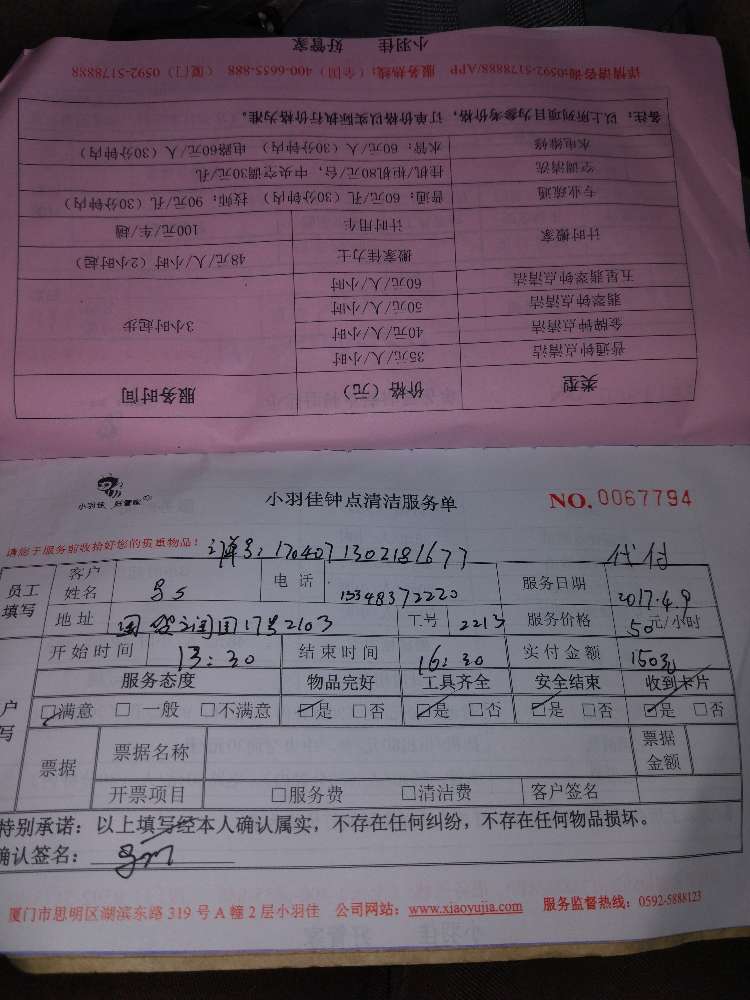 小羽佳 好管家
详情请咨询:0592-5178888/APP 服务热线:(全国)400-6655-888 (厦门)0592-5178888
备注:以上所列项目为参考价格,订单价格以实际执行价格为准。
水电维修 水管:60元/人(30分钟内) 电路60元/人(30分钟内)
空调清洗 挂机/柜机80元/台,中央空调30元/孔
专业疏通 普通:60元/孔(30分钟内) 技师:90元/孔(30分钟内)
计时搬家 计时用车 100元/车/趟
搬家佳力士 48元/人/小时(2小时起)
五星翡翠钟点清洁 60元/人/小时
翡翠钟点清洁 50元/人/小时 3小时起步
金牌钟点清洁 40元/人/小时
普通钟点清洁 35元/人/小时
类型 价格(元) 服务时间
小羽佳 好管家 小羽佳钟点清洁服务单 NO. 0067794
请您于服务前收拾好您的贵重物品! 订单号:1704071302181677 代付
员工填写 客户姓名 电话 13348372220 服务日期 2017.4.9
地址 17号2103 工号 2213 服务价格 50元/小时
开始时间 13:30 结束时间 16:30 实付金额 150元
服务态度 物品完好 工具齐全 安全结束 收到卡片
户写 ☑满意 □一般 □不满意 ☑是 □否 ☑是 □否 ☑是 □否 ☑是 □否
票据 票据名称 票据金额
开票项目 □服务费 □清洁费 客户签名
特别承诺:以上填写经本人确认属实,不存在任何纠纷,不存在任何物品损坏。
确认签名:
厦门市思明区湖滨东路319号A幢2层小羽佳 公司网站:www.xiaoyujia.com 服务监督热线:0592-5888123